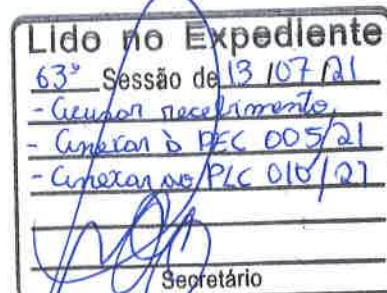 Lido no Expediente
63ª Sessão de 13/07/21
- Acusar recebimento.
- Anexar à PEC 005/21
- Anexar ao PLC 010/21
Secretário